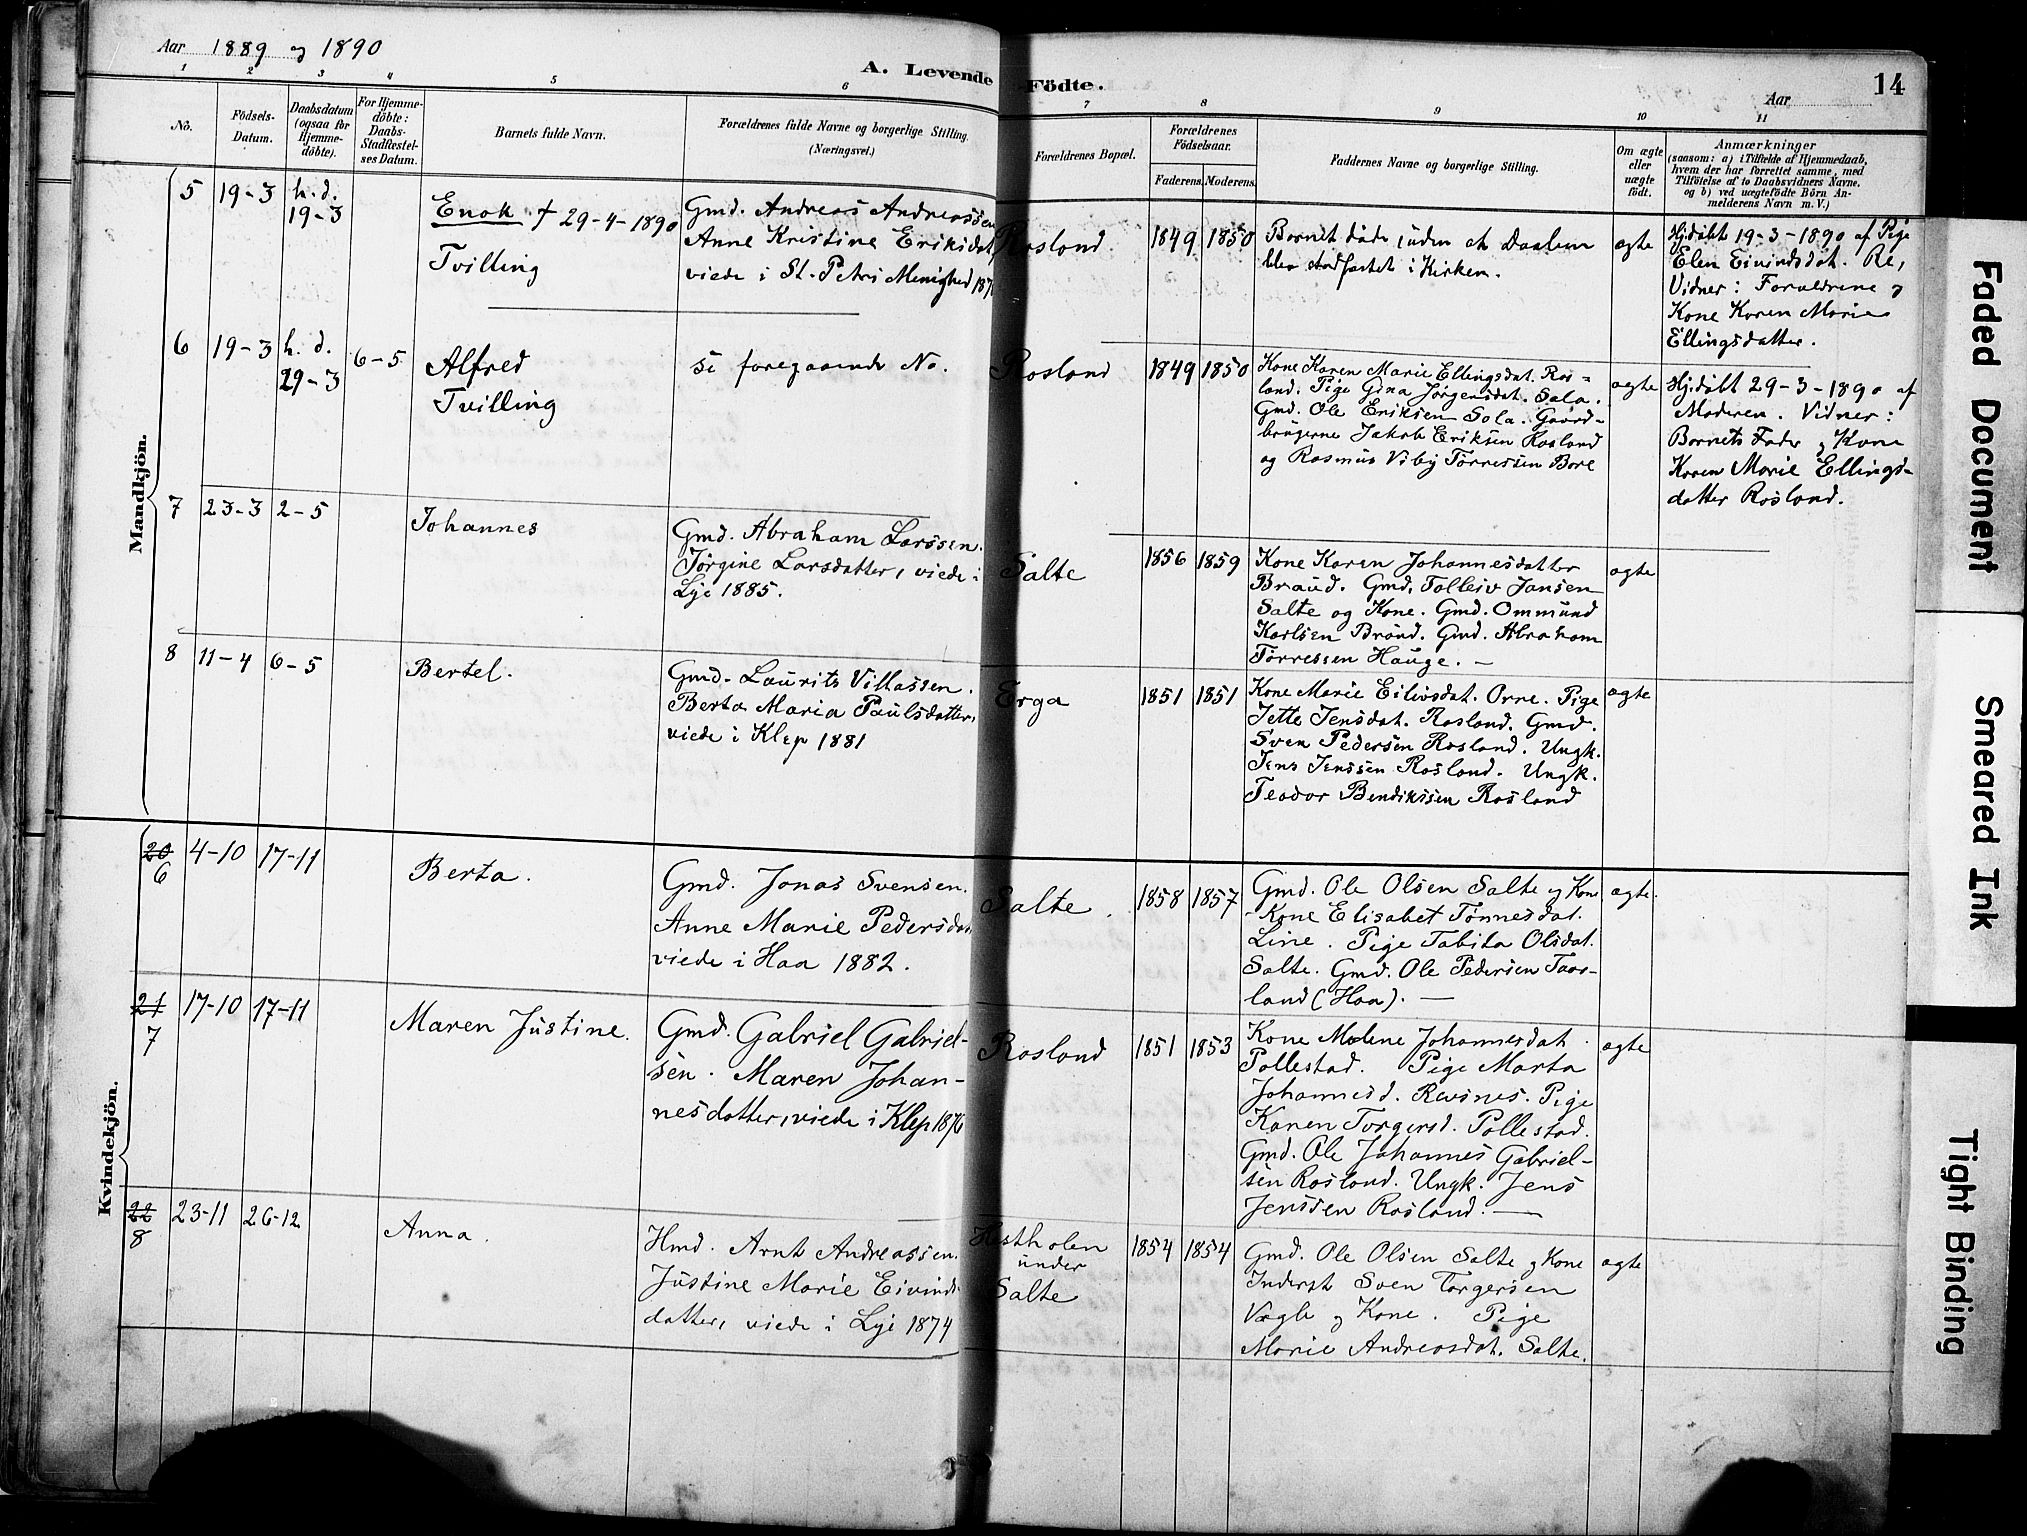 Aar 1889 og 1890
A. Levende Födte.
14
Aar
1 2 3 4 5 6 7 8 9 10 11
No.
Födsels-
Datum.
Daabsdatum
(ogsaa for
Hjemme-
döbte).
For Hjemme-
döbte:
Daabs-
Stadfæstel-
ses Datum.
Barnets fulde Navn.
Forældrenes fulde Navne og borgerlige Stilling.
(Næringsvei.)
Forældrenes Bopæl.
Forældrenes
Födselsaar.
Faderens. Moderens.
Faddernes Navne og borgerlige Stilling.
Om ægte
eller
uægte
födt.
Anmærkninger
(saasom: a) i Tilfælde af Hjemmedaab,
hvem der har forrettet samme, med
Tilföielse af to Daabsvidners Navne,
og b) ved uægtefödte Börn An-
melderens Navn m. V.)
Mandkjön.
5 19-3 h. d.
19-3
Enok † 29-4-1890
Tvilling
Gmd. Andreas Andreassen
Anne Kristine Eriksdat.
viede i St. Petri Menighed
Rosland
1849 1850
Barnet døde, uden at Daaben
blev stadfæstet i Kirken.
ægte
Hjdøbt 19-3-1890 af Pige
Elen Eivindsdat. Re,
Vidner: Forældrene og
Kone Karen Marie
Ellingsdatter.
6 19-3 h. d.
29-3
6-5
Alfred
Tvilling
se foregaaende No.
Rosland
1849 1850
Kone Karen Marie Ellingsdat. Ros-
land. Pige Gina Jørgensdat. Sola.
Gmd. Ole Eriksen Sola. Gaard-
brugerne Jakob Eriksen Rosland
og Rasmus Viby Tørressen Bore
ægte
Hjdøbt 29-3-1890 af
Moderen. Vidner:
Barnets Fader og Kone
Karen Marie Ellings-
datter Rosland.
7 23-3 2-5
Johannes
Gmd. Abraham Larssen.
Jørgine Larsdatter, viede i
Lye 1885.
Salte
1856 1859
Kone Karen Johannesdatter
Braud. Gmd. Tolleiv Jansen
Salte og Kone. Gmd. Ommund
Karlsen Braud. Gmd. Abraham
Tørressen Hauge. —
ægte
8 11-4 6-5
Bertel.
Gmd. Laurits Villassen.
Berta Maria Paulsdatter,
viede i Klep 1881
Erga
1851 1851
Kone Marie Eilivsdat. Orre. Pige
Jette Jensdat. Rosland. Gmd.
Sven Pedersen Rosland. Ungk.
Jens Jenssen Rosland. Ungk.
Teodor Bendikssen Rosland
ægte
Kvindekjön.
20
6
4-10 17-11
Berta.
Gmd. Jonas Svensen.
Anne Marie Pedersdat.
viede i Haa 1882.
Salte.
1858 1857
Gmd. Ole Olsen Salte og Kone
Kone Elisabet Tønnesdat.
Line. Pige Tabita Olsdat.
Salte. Gmd. Ole Pedersen Taas-
land (Haa). —
ægte.
21
7
17-10 17-11
Maren Justine.
Gmd. Gabriel Gabriel-
sen. Maren Johan-
nesdatter, viede i Klep 1876
Rosland
1851 1853
Kone Malene Johannesdat.
Pollestad. Pige Marta
Johannesd. Revsnes. Pige
Karen Torgersd. Pollestad.
Gmd. Ole Johannes Gabriel-
sen Rosland. Ungk. Jens
Jenssen Rosland. —
ægte
22
8
23-11 26-12
Anna.
Hmd. Arnt Andreassen.
Justine Marie Eivinds-
datter, viede i Lye 1874
Hestholen
under
Salte
1854 1854
Gmd. Ole Olsen Salte og Kone
Inderst Sven Torgersen
Vagle og Kone. Pige
Marie Andreasdat. Salte.
ægte
Faded Document
Smeared Ink
Tight Binding